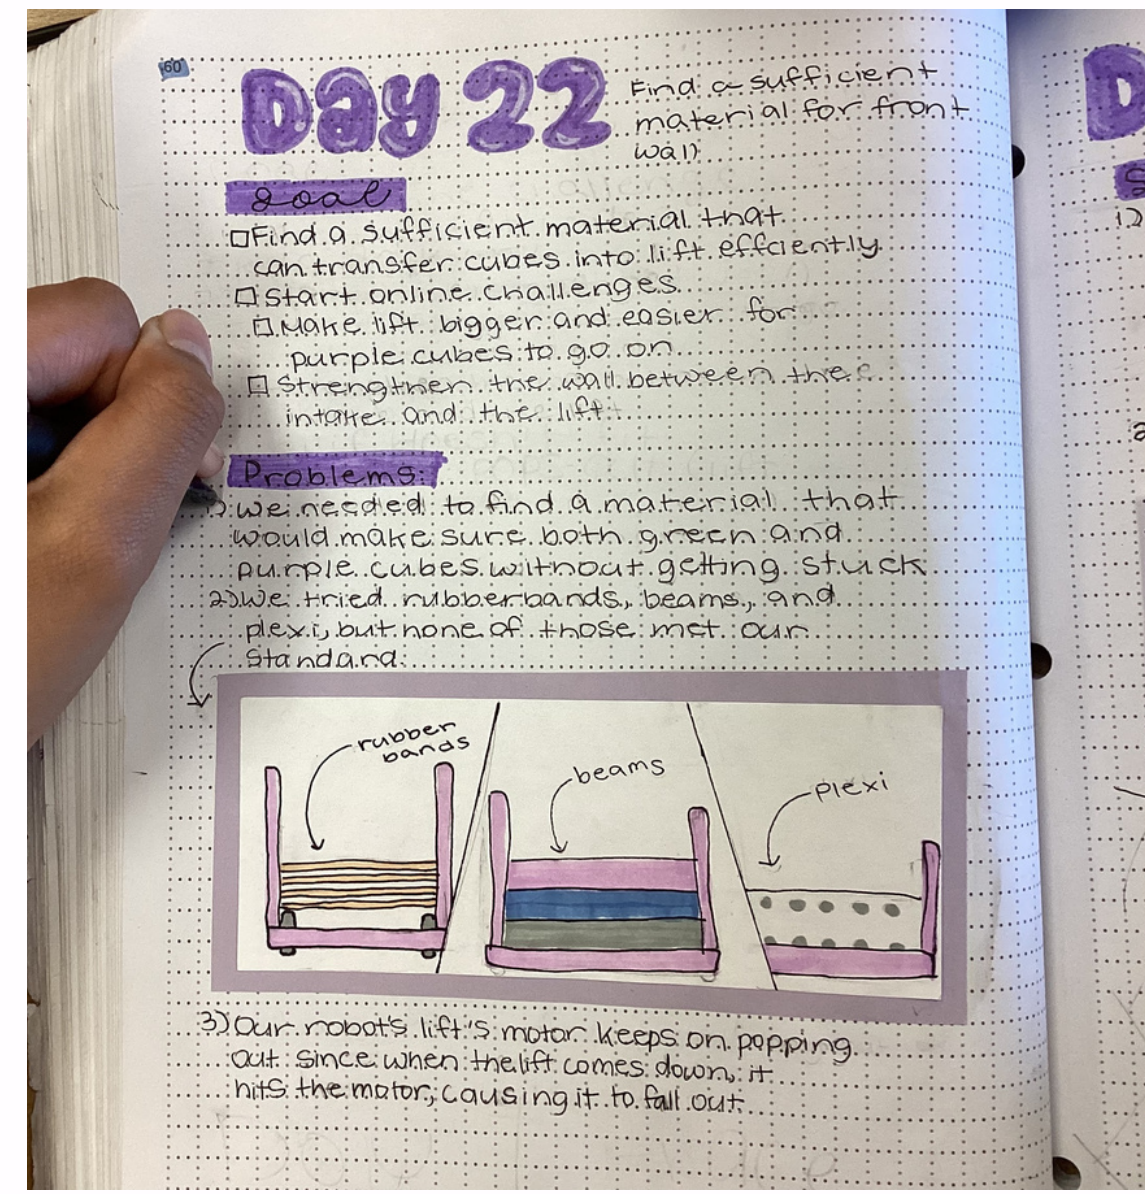 60
Day 22
Find a sufficient
material for front
wall
goal
Find a sufficient material that
can transfer cubes into lift effciently
Start online challenges
Make lift bigger and easier for
purple cubes to go on
Strengthen the wall between the
intake and the lift
Problems:
1) We needed to find a material that
would make sure both green and
purple cubes without getting stuck
2) We tried rubberbands, beams, and
plexi, but none of those met our
standard.
rubber
bands
beams
plexi
3) Our robot's lift's motor keeps on popping
out since when the lift comes down, it
hits the motor, causing it to fall out
D
S
1)
2